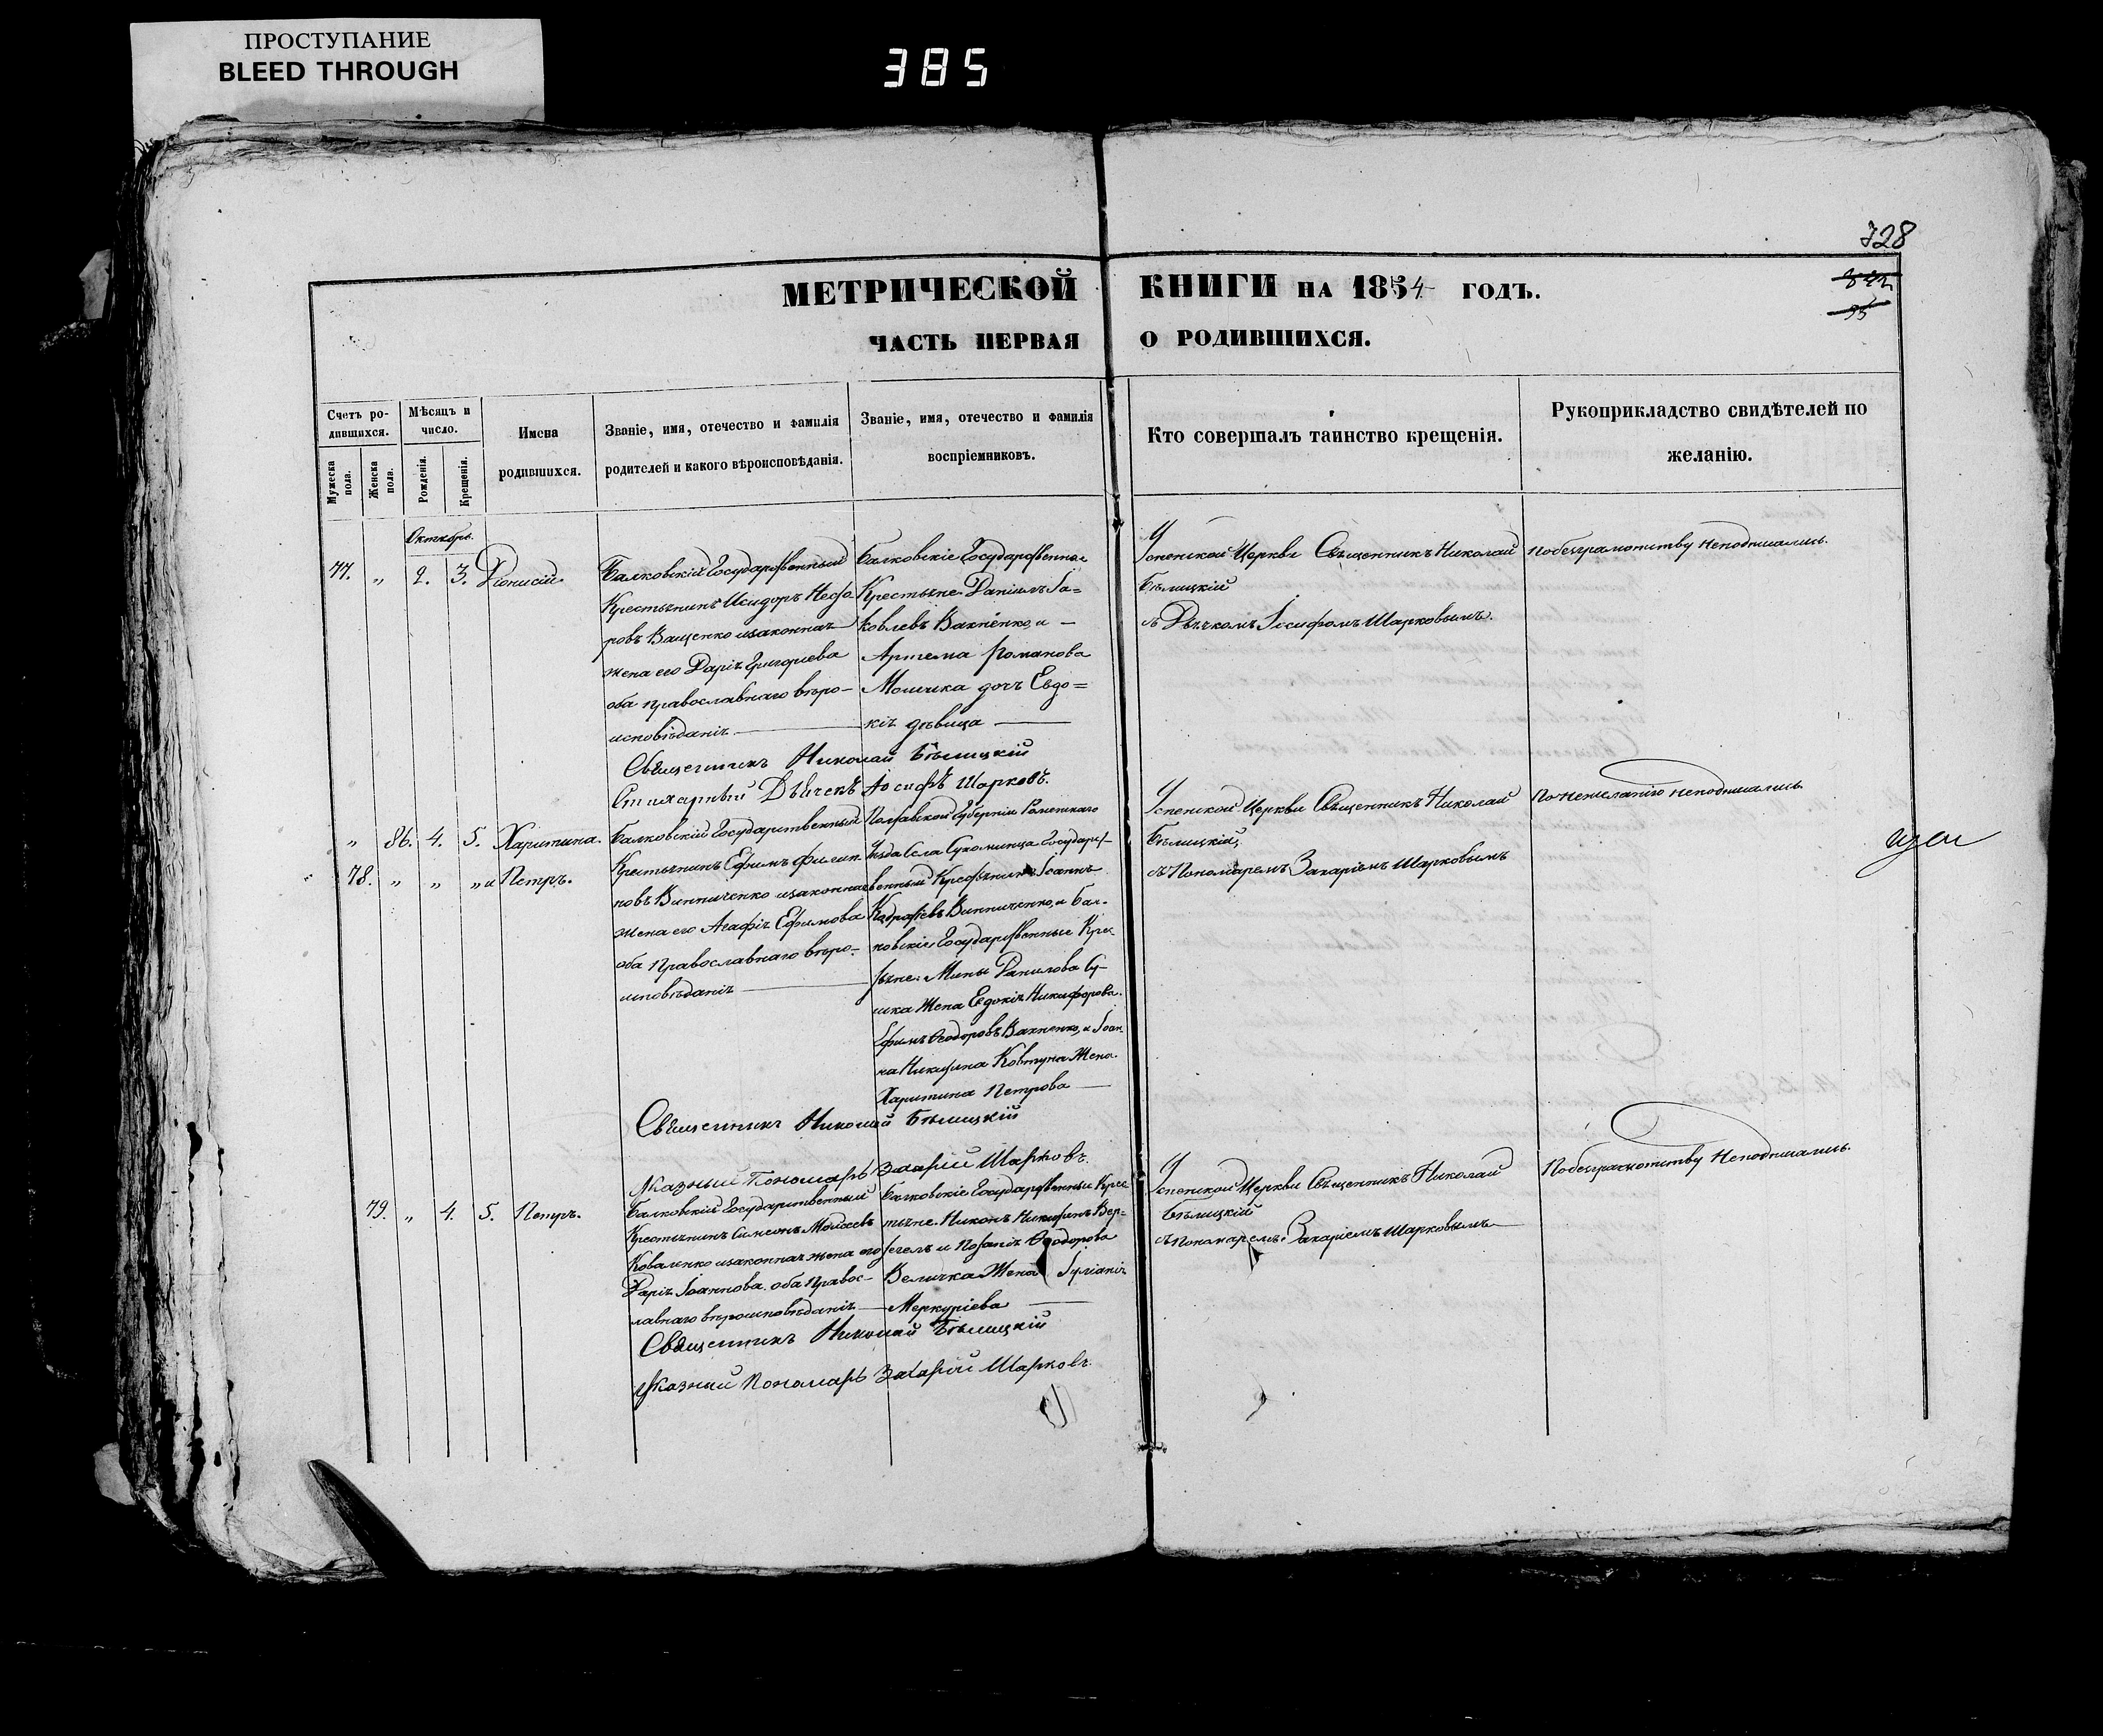 ПРОСТУПАНИЕ
BLEED THROUGH
385
728
МЕТРИЧЕСКОЙ КНИГИ НА 1854 ГОДЪ.
ЧАСТЬ ПЕРВАЯ О РОДИВШИХСЯ.
Счетъ ро-
дившихся.
Мужеска пола.
Женска пола.
Мѣсяцъ и
число.
Рожденія.
Крещенія.
Имена
родившихся.
Званіе, имя, отечество и фамилія
родителей и какого вѣроисповѣданія.
Званіе, имя, отечество и фамилія
воспріемниковъ.
Кто совершалъ таинство крещенія.
Рукоприкладство свидѣтелей по
желанію.
Октябрь.
77. „ 2. 3. Діонисій
Балковскій Государственный
Крестьянинъ Исидоръ Назо
ровъ Ващенко изаконная
жена его Дарія Григориева
оба православнаго вѣро-
исповѣданія
Балковскіе Государственные
Крестьяне Даніилъ Іа=
ковлевъ Вахненко, и
Артема Романова
дочь Евдо=
кія дѣвица
Успенской Церкви Священникъ Николай
Бѣлицкій
съ Дьячкомъ Іосифомъ Шарковымъ.
По безграмотству неподписались.
Священникъ Николай Бѣлицкій
Стихарный Дьячекъ Іосифъ Шарковъ.
„ 86. 4. 5. Харитина.
78. „ „ „ и Петръ.
Балковскій Государственный
Крестьянинъ Ефимъ Филип
повъ Винниченко изаконная
жена его Агафія Ефимова
оба Православнаго вѣро-
исповѣданія
Полтавской Губерніи Роменскаго
Уѣзда Села Государст-
венный Крестьянинъ Іоаннъ
Винниченко, и Бал-
ковскіе Государственные Крес
тьяне: Мины Данилова Су-
шка Жена Евдокія Никифорова.
Ефимъ Ѳеодоровъ Вахненко, и Іоан
на Никитина Ковтуна Жена
Харитина Петрова
Успенской Церкви Священникъ Николай
Бѣлицкій,
съ Пономаремъ Захаріемъ Шарковымъ
По нежеланію неподписались.
Священникъ Николай Бѣлицкій
Указный Пономарь Захарій Шарковъ.
79. „ 4. 5. Петръ.
Балковскій Государственный
Крестьянинъ Симеонъ Моисеевъ
Коваленко изаконная жена его
Дарія Іоаннова. оба Правос-
лавнаго вѣроисповѣданія
Балковскіе Государственные Крес
тьяне. Никонъ Никитинъ Вер=
и Ѳеодорова
Величка Жена Іуліанія
Меркуріева
Успенской Церкви Священникъ Николай
Бѣлицкій
съ Пономаремъ Захаріемъ Шарковымъ
По безграмотству Неподписались.
Священникъ Николай Бѣлицкій
Указный Пономарь Захарій Шарковъ.